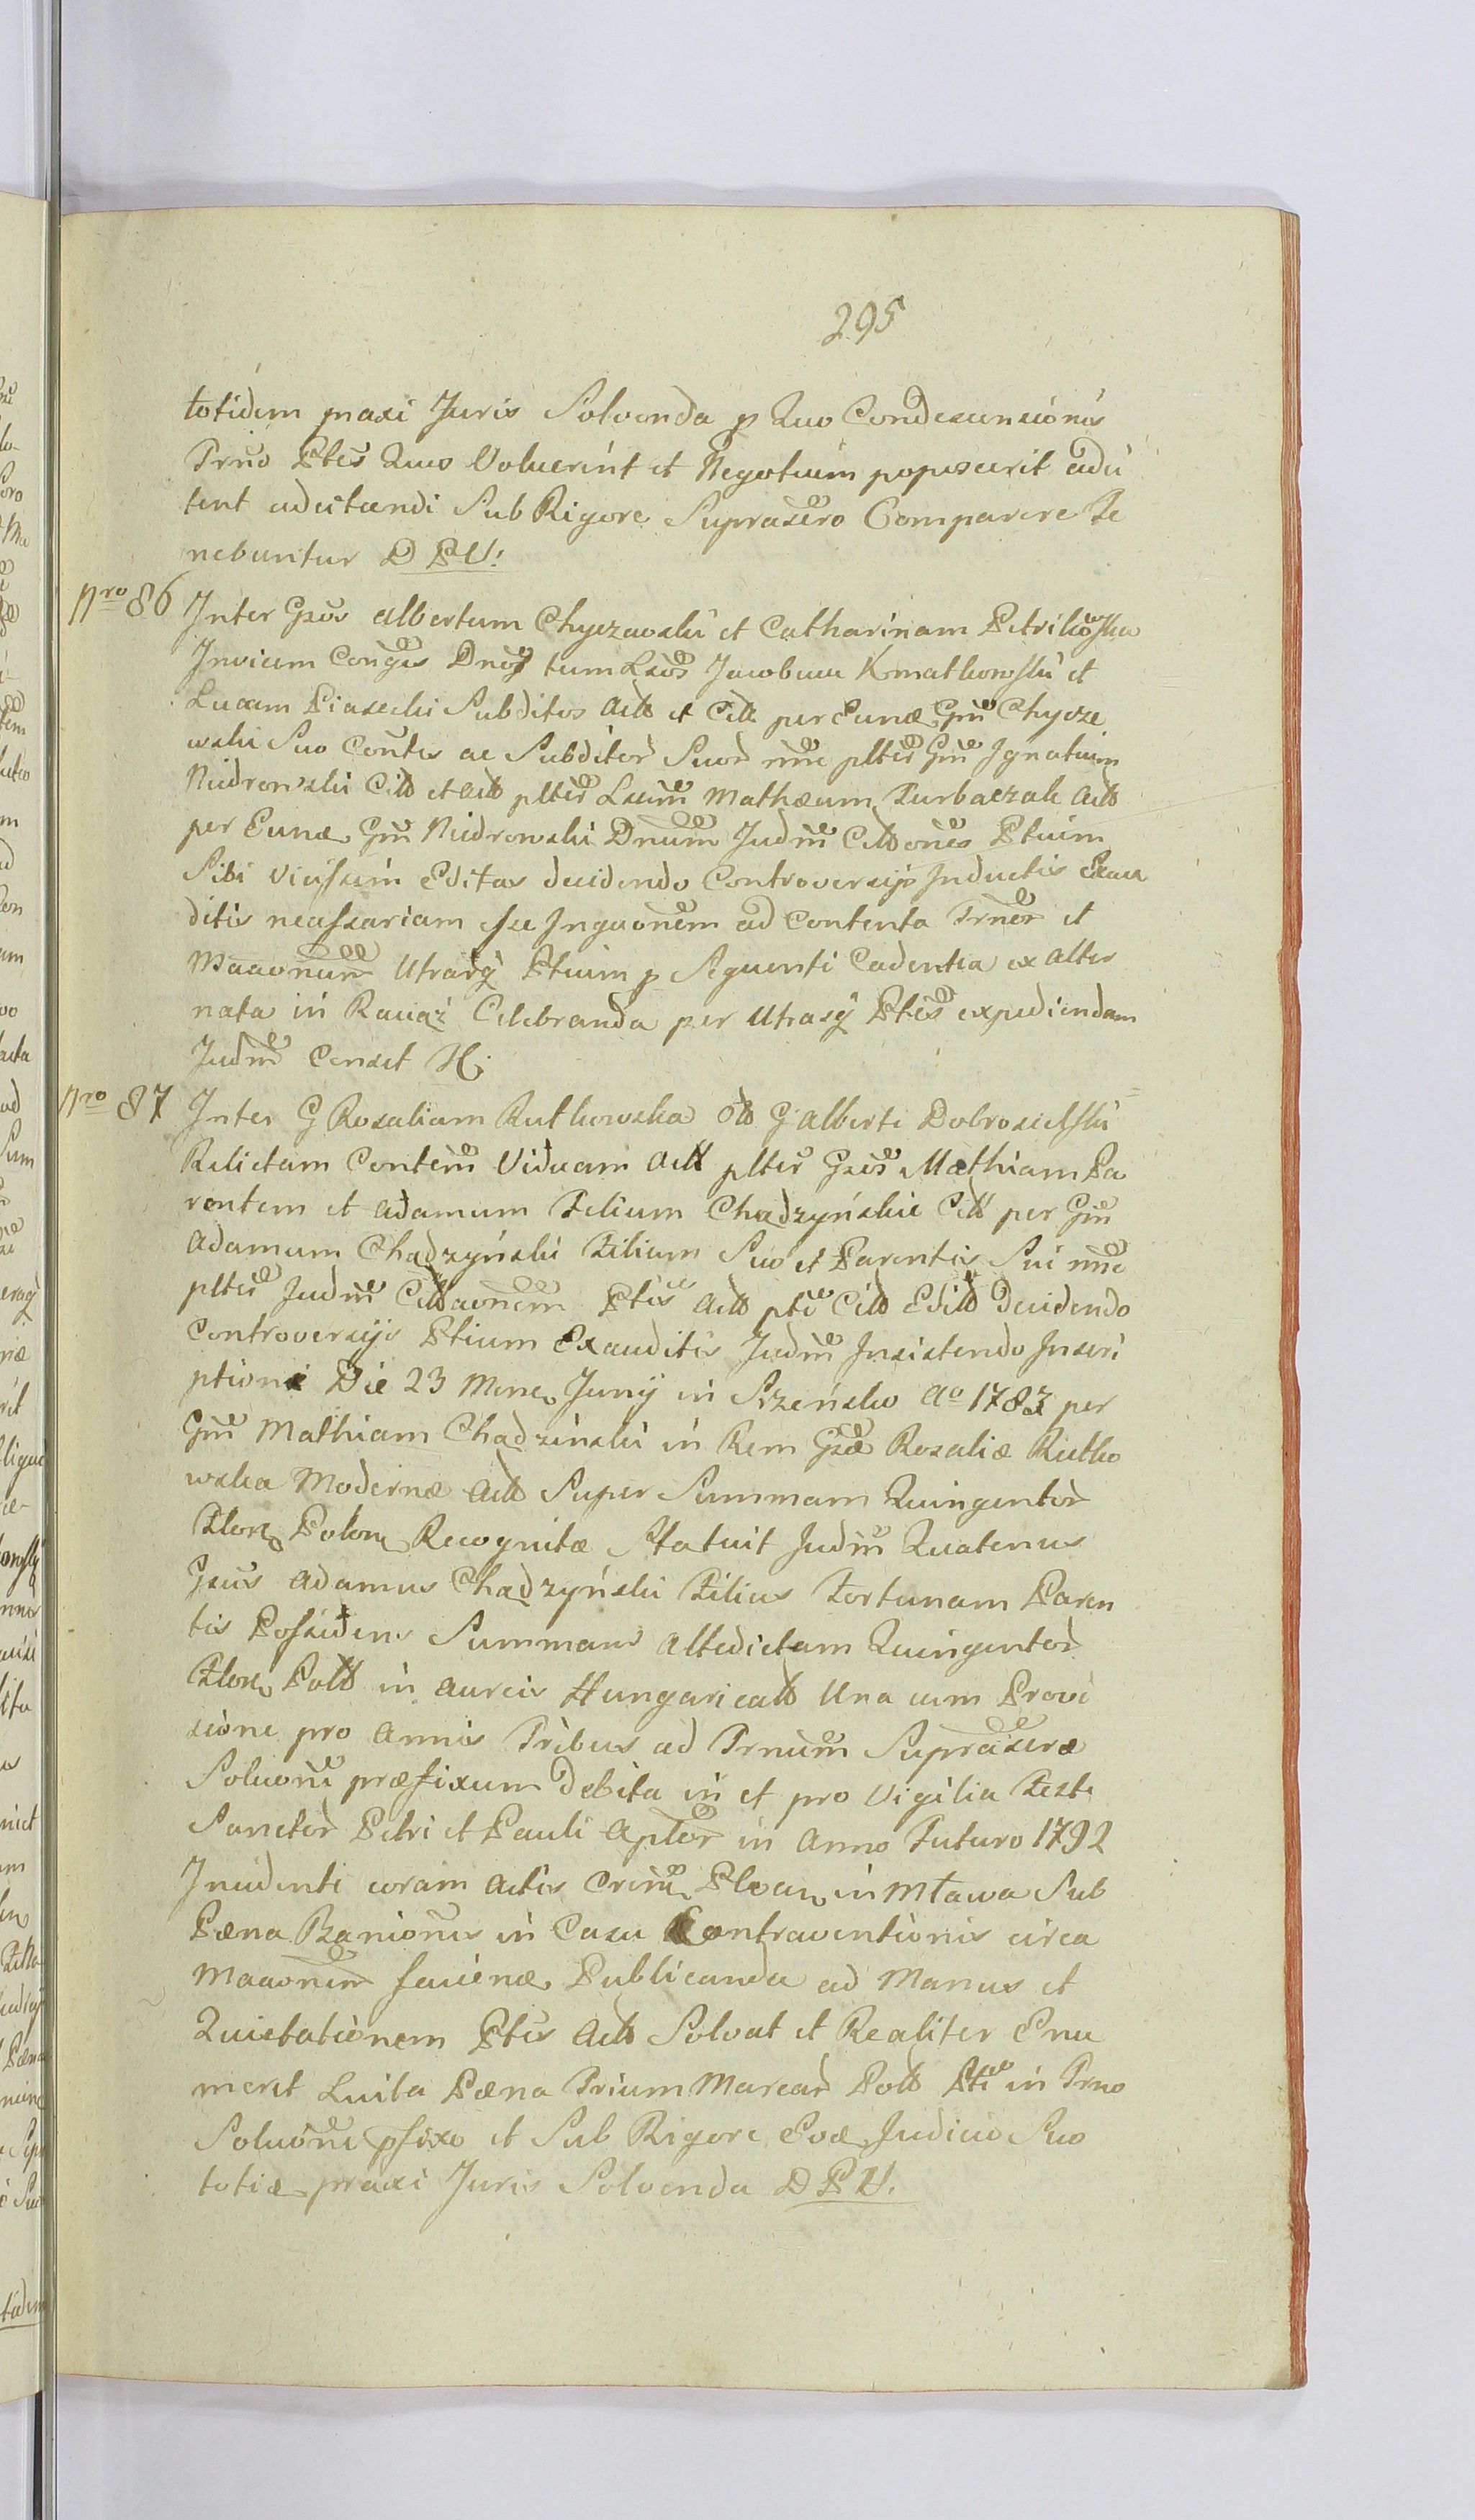 295
totidem praxi Juris Solvenda p quo Condescensionis
Trno Ptes Quos Voluerint et Negotium poposcerit adci
tent adcitandi Sub Rigore Suprascro Comparere Te
nebuntur D P U:
Nro 86 Inter Gsos Albertum Chyczewski et Catharinam Petrikowska
Invicem Conges Dnos tum Lsos Jacobum Kmatkowski et
Lucam Piasecki Subditos Actt et Citt per eund Gm Chycze
wski Suo Contis ac Subditor Suor nne pltes Gm Ignatium
Niedrowski Citt et Actt pltes Lsum Mathæum Turbaczak Actt
per Eund Gm Niedrowski Dnum Judm Citt ones Ptium
Sibi Vicissim Editas decidendo Controversijs Inductis Exau
ditis necessariam esse Inqaonem ad Contenta Trner et
Maaonum Utrarq Ptium p Sequenti Cadentia ex Alter
nata in Raciąż Celebranda per Utrasq Ptes expediendam
Judm Censet H:
Nro 87 Inter G Rosaliam Rutkowska Ott G Alberti Dobrosielski
Relictam Contem Viduam Actt pltes Gsos Mathiam Pa
rentem et Adamum Filium Chądzyńskie Citt per Gm
Adamum Chądzyński Filium Suo et Parentis Sui nne
pltes Judm Cittaonem Ptis Actt pti Citt Editt Decidendo
Controversijs Ptium Exauditis Judm Insistendo Inscri
ptioni Die 23 Mens Junij in Szeńsko Ao 1783 per
Gm Mathiam Chądzinski in Rem Gsæ Rosaliæ Rutko
wska Modernæ Actt Super Summam Quingentor
Flor Polon Recognitæ Statuit Judm Quatenus
Gsus Adamus Chądzyński Filius Fortunam Paren
tis Possidens Summam Attedictam Quingentor
Flor Poltt in aureis Hungaricatt Una cum Provi
sione pro Annis Tribus ad Trnum Suprascræ
Soluoni præfixum Debita in et pro Vigilia Festi
Sanctor Petri et Pauli Apltor in Anno Futuro 1792
Incidenti coram Actis Crim Plocen in Mława Sub
Pæna Banionis in Casu Contraventionis circa
Maaonem Publicanda ad Manus et
Quietationem Ptis Actt Solvat et Realiter Enu
meret Luita Pæna Trium Marcar Poltt Pti in Trno
Soluoni pfixo et Sub Rigore Judicio Suo
totid praxi Juris Solvenda D P U.